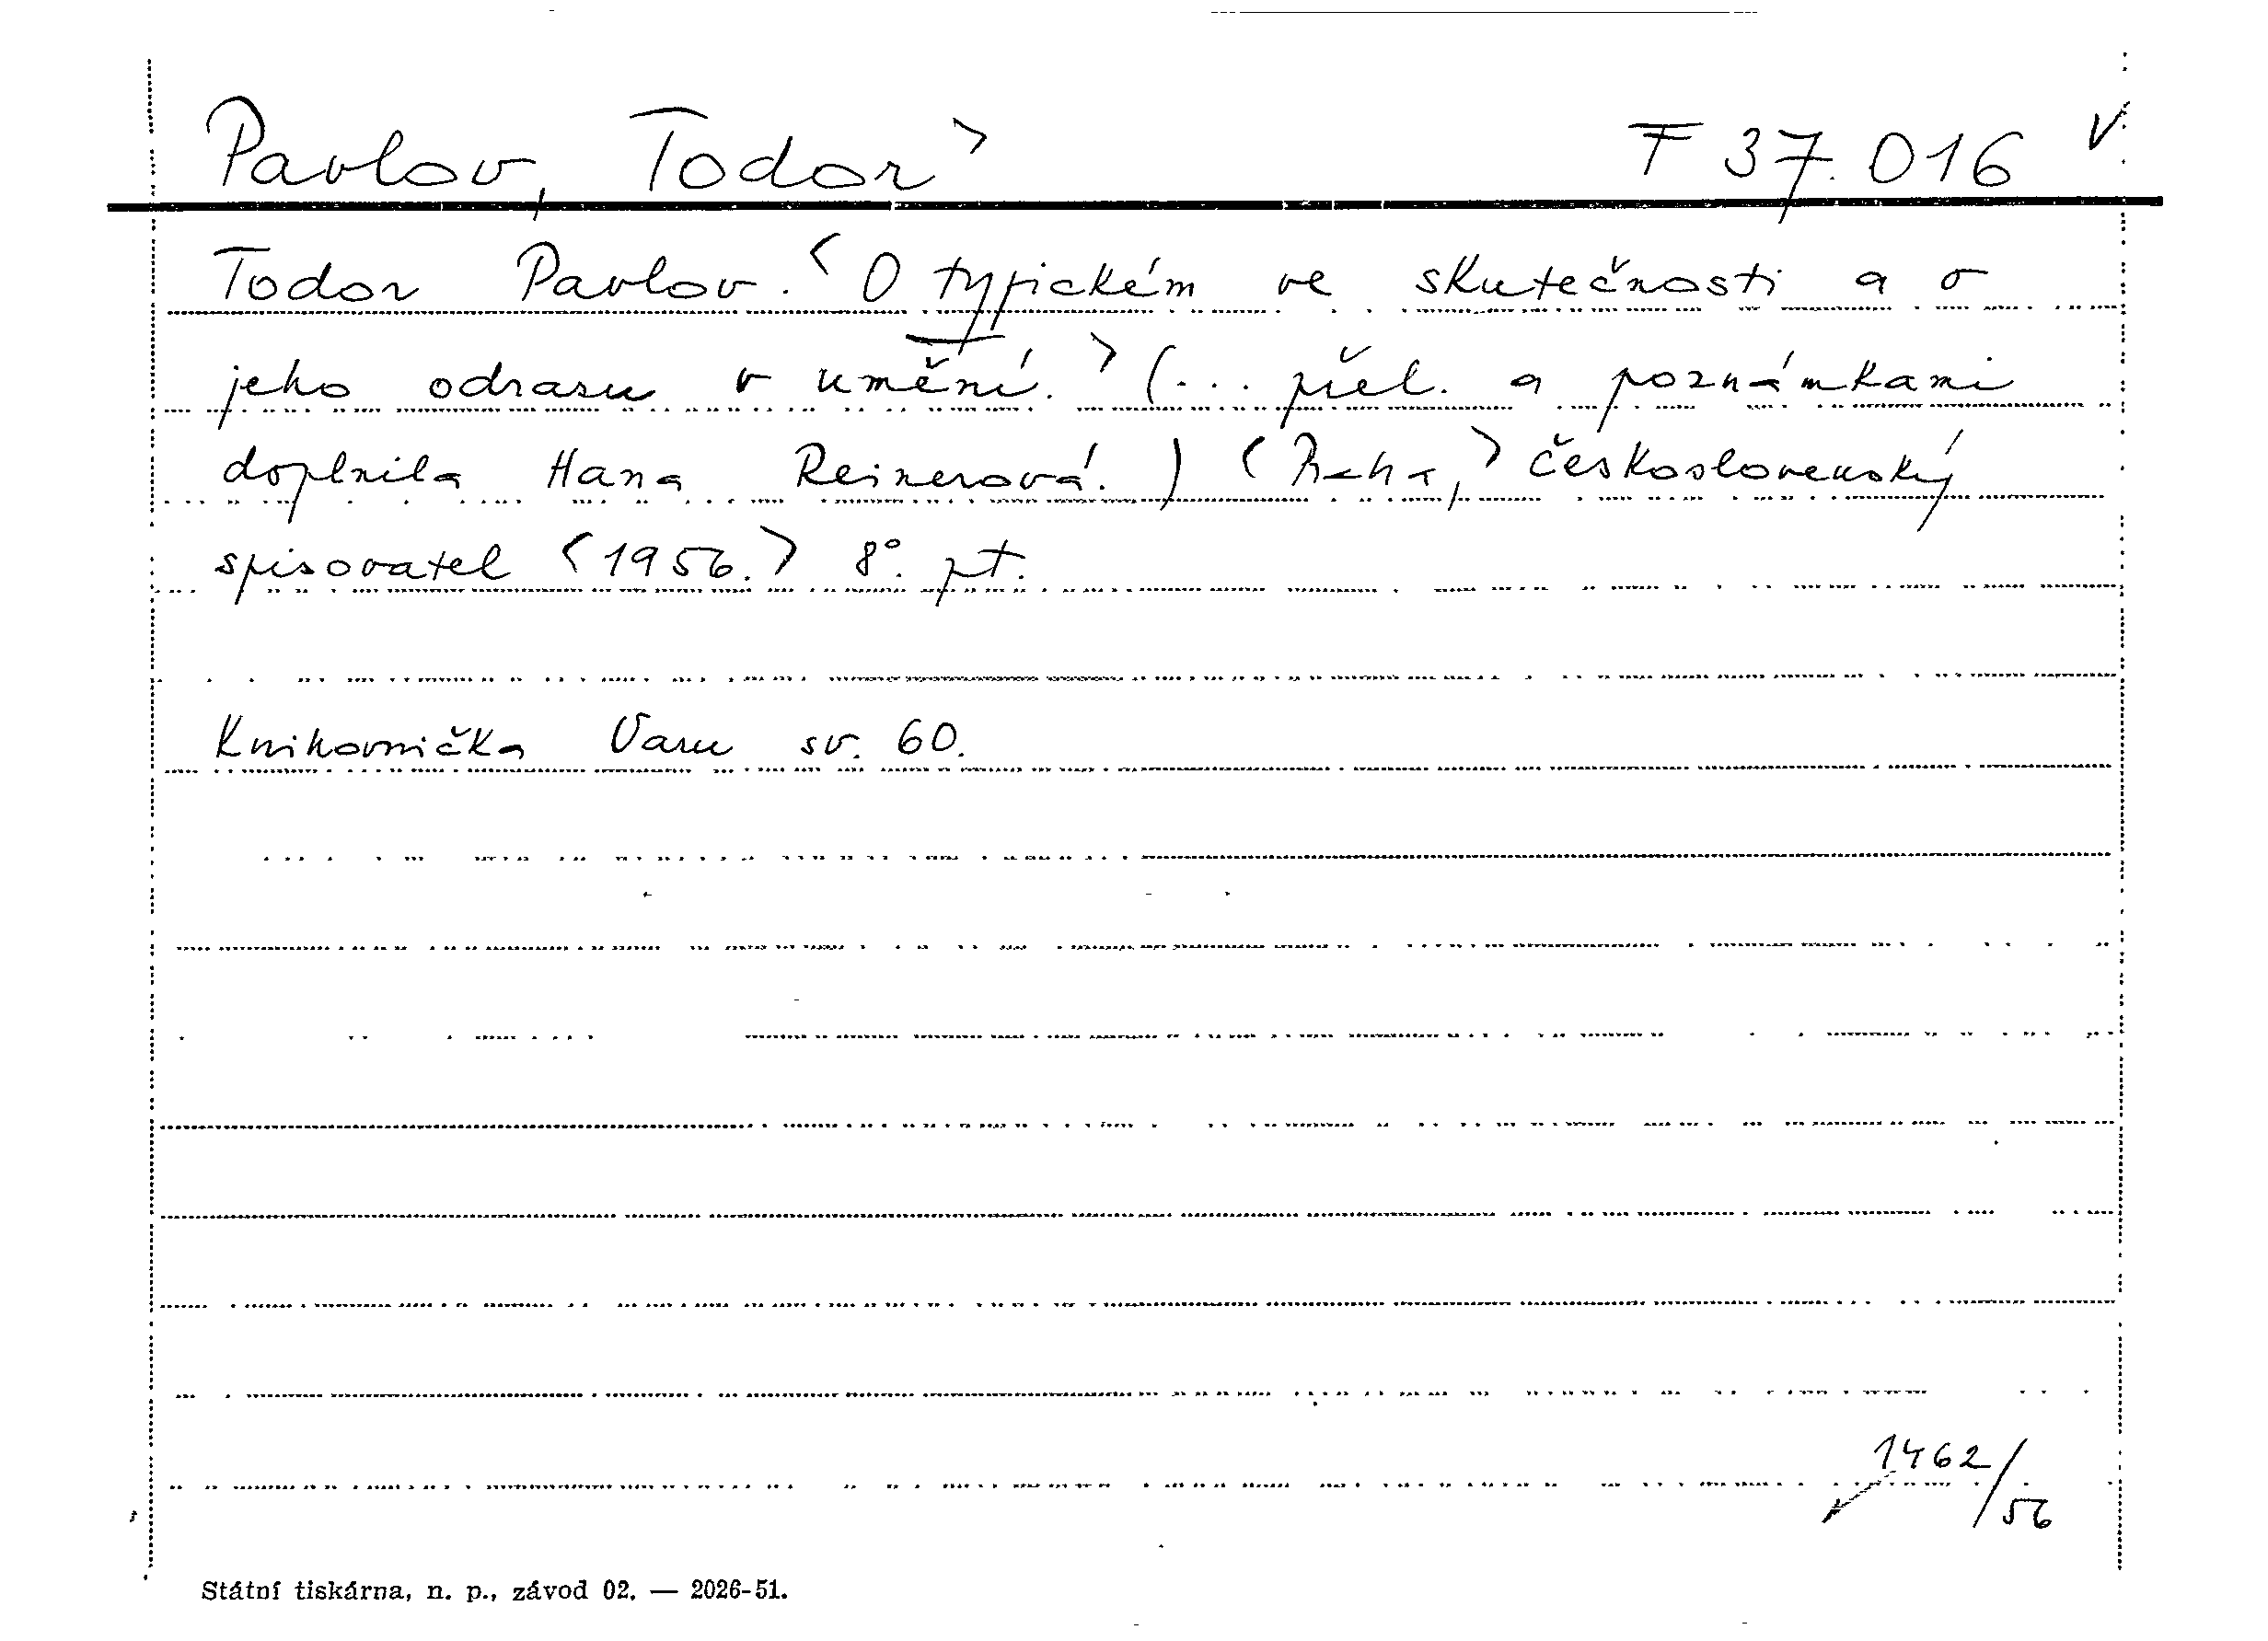 Pavlov, Todor> F 37.016 V
Todor Pavlov. <O typickém ve skutečnosti a o
jeho odrazu v umění.> (... přel. a poznámkami
doplnila Hana Reinerová.) <Praha,> Československý
spisovatel <1956.> 8°. pt.
Knihovnička Varu sv. 60.
1462/56
Státní tiskárna, n. p., závod 02. — 2026-51.